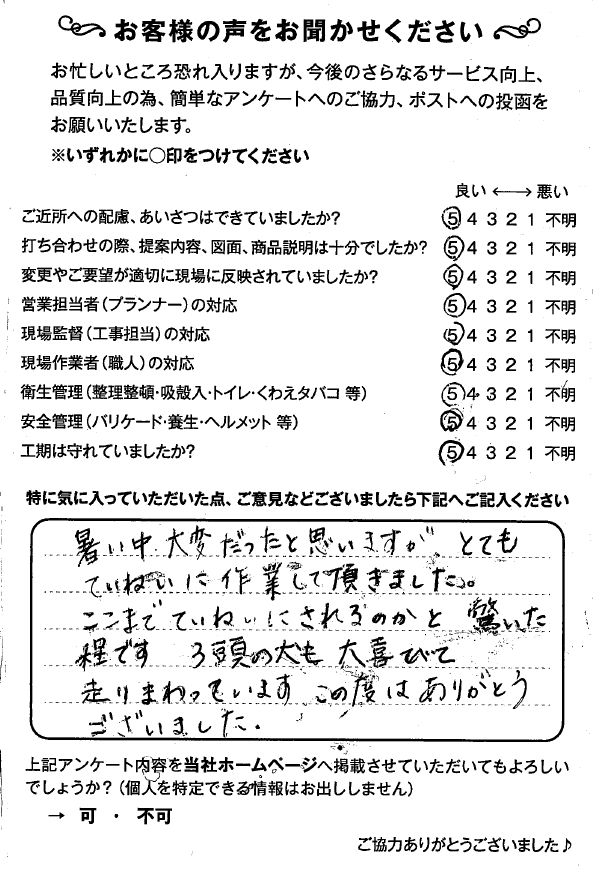 お客様の声をお聞かせください
お忙しいところ恐れ入りますが、今後のさらなるサービス向上、
品質向上の為、簡単なアンケートへのご協力、ポストへの投函を
お願いいたします。
※いずれかに○印をつけてください
良い ←→ 悪い
ご近所への配慮、あいさつはできていましたか? ⑤ 4 3 2 1 不明
打ち合わせの際、提案内容、図面、商品説明は十分でしたか? ⑤ 4 3 2 1 不明
変更やご要望が適切に現場に反映されていましたか? ⑤ 4 3 2 1 不明
営業担当者(プランナー)の対応 ⑤ 4 3 2 1 不明
現場監督(工事担当)の対応 ⑤ 4 3 2 1 不明
現場作業者(職人)の対応 ⑤ 4 3 2 1 不明
衛生管理(整理整頓・吸殻入・トイレ・くわえタバコ 等) ⑤ 4 3 2 1 不明
安全管理(バリケード・養生・ヘルメット 等) ⑤ 4 3 2 1 不明
工期は守れていましたか? ⑤ 4 3 2 1 不明
特に気に入っていただいた点、ご意見などございましたら下記へご記入ください
暑い中 大変だったと思いますが、とても
ていねいに作業して頂きました。
ここまでていねいにされるのかと驚いた
程です 3頭の犬も大喜びで
走りまわっています この度はありがとう
ございました。
上記アンケート内容を当社ホームページへ掲載させていただいてもよろしい
でしょうか?(個人を特定できる情報はお出ししません)
→ 可 ・ 不可
ご協力ありがとうございました♪